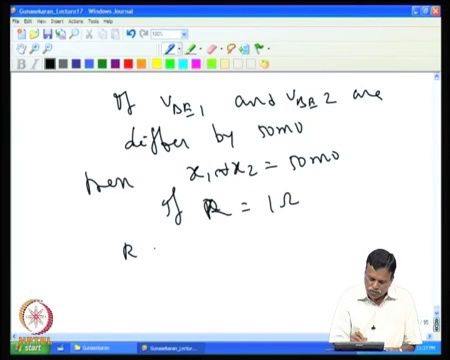 Gunasekaran_Lecture17 - Windows Journal
File Edit View Insert Actions Tools Help
If VBE1 and VBE2 are
differ by 50mV
then x1 & x2 = 50mV
If R = 1Ω
R
NPTEL
start Gunasekaran Gunasekaran_Lectur...